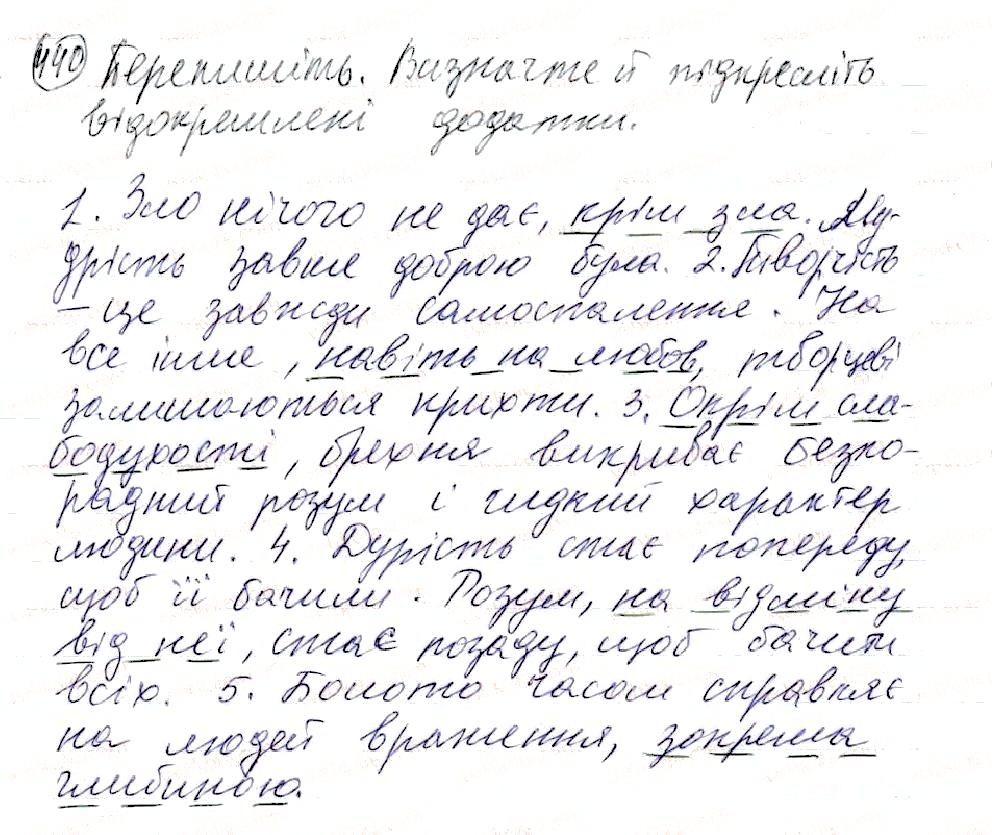 440 Перепишіть. Визначте й підкресліть
відокремлені додатки.
1. Зло нічого не дає, крім зла. Му-
дрість завше доброю була. 2. Творчість
– це завжди самоспалення. На
все інше, навіть на любов, творцеві
залишаються крихти. 3. Окрім сла-
бодухості, брехня викриває безпо-
радний розум і гидкий характер
людини. 4. Дурість стає попереду,
щоб її бачили. Розум, на відміну
від неї, стає позаду, щоб бачити
всіх. 5. Болото часом справляє
на людей враження, зокрема
глибиною.